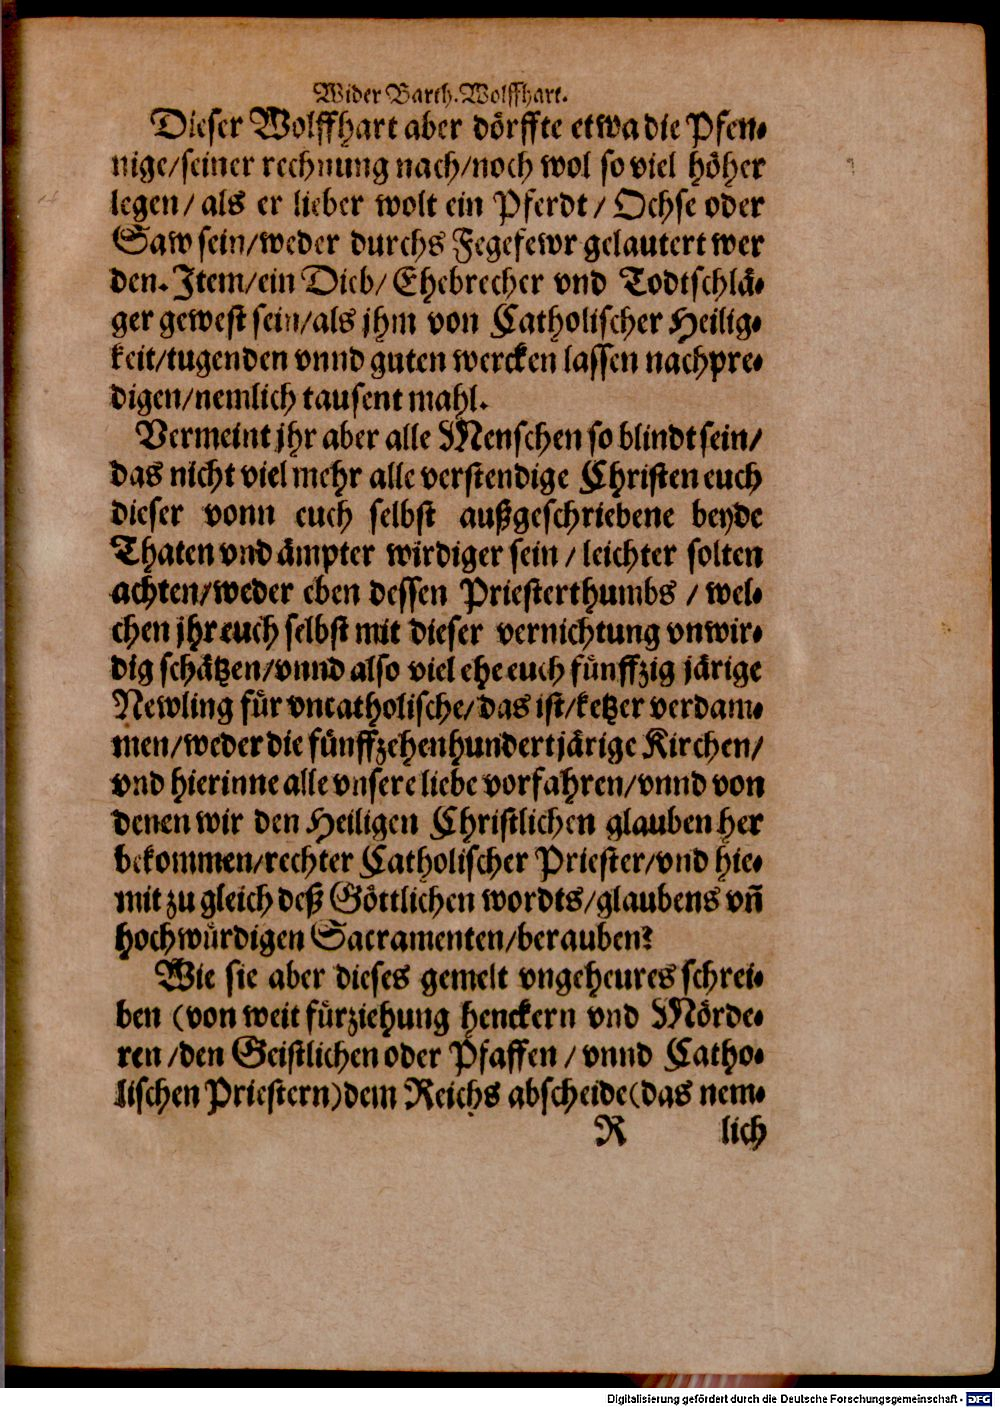 Wider Barth. Wolffhart.
Dieser Wolffhart aber dörffte etwa die Pfen-
nige/seiner rechnung nach/noch wol so viel höher
legen/ als er lieber wolt ein Pferdt/ Ochse oder
Saw sein/weder durchs Fegefewr gelautert wer
den. Item/ein Dieb/ Ehebrecher vnd Todtschlä-
ger gewest sein/als jhm von Catholischer Heilig-
keit/tugenden vnnd guten wercken lassen nachpre-
digen/nemlich tausent mahl.
Vermeint jhr aber alle Menschen so blindt sein/
das nicht viel mehr alle verstendige Christen euch
dieser vonn euch selbst außgeschriebene beyde
Thaten vnd ämpter wirdiger sein / leichter solten
achten/weder eben dessen Priesterthumbs / wel-
chen jhr euch selbst mit dieser vernichtung vnwir-
dig schätzen/vnnd also viel ehe euch fünffzig järige
Newling für vncatholische/das ist/ketzer verdam-
men/weder die fünffzehenhundertjärige Kirchen/
vnd hierinne alle vnsere liebe vorfahren/vnnd von
denen wir den Heiligen Christlichen glauben her
bekommen/rechter Catholischer Priester/vnd hie-
mit zu gleich deß Göttlichen wordts/glaubens vñ
hochwürdigen Sacramenten/berauben?
Wie sie aber dieses gemelt vngeheures schrei-
ben (von weit fürziehung henckern vnd Mörde-
ren /den Geistlichen oder Pfaffen / vnnd Catho-
lischen Priestern) dem Reichs abscheide (das nem-
R lich
Digitalisierung gefördert durch die Deutsche Forschungsgemeinschaft - DFG